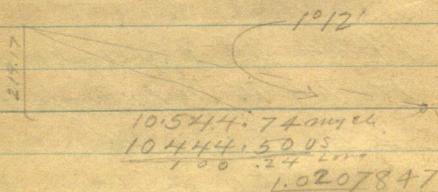 1°12'
219.7
10.544.74 my ch
10444.50 US
100.24
1.0207847